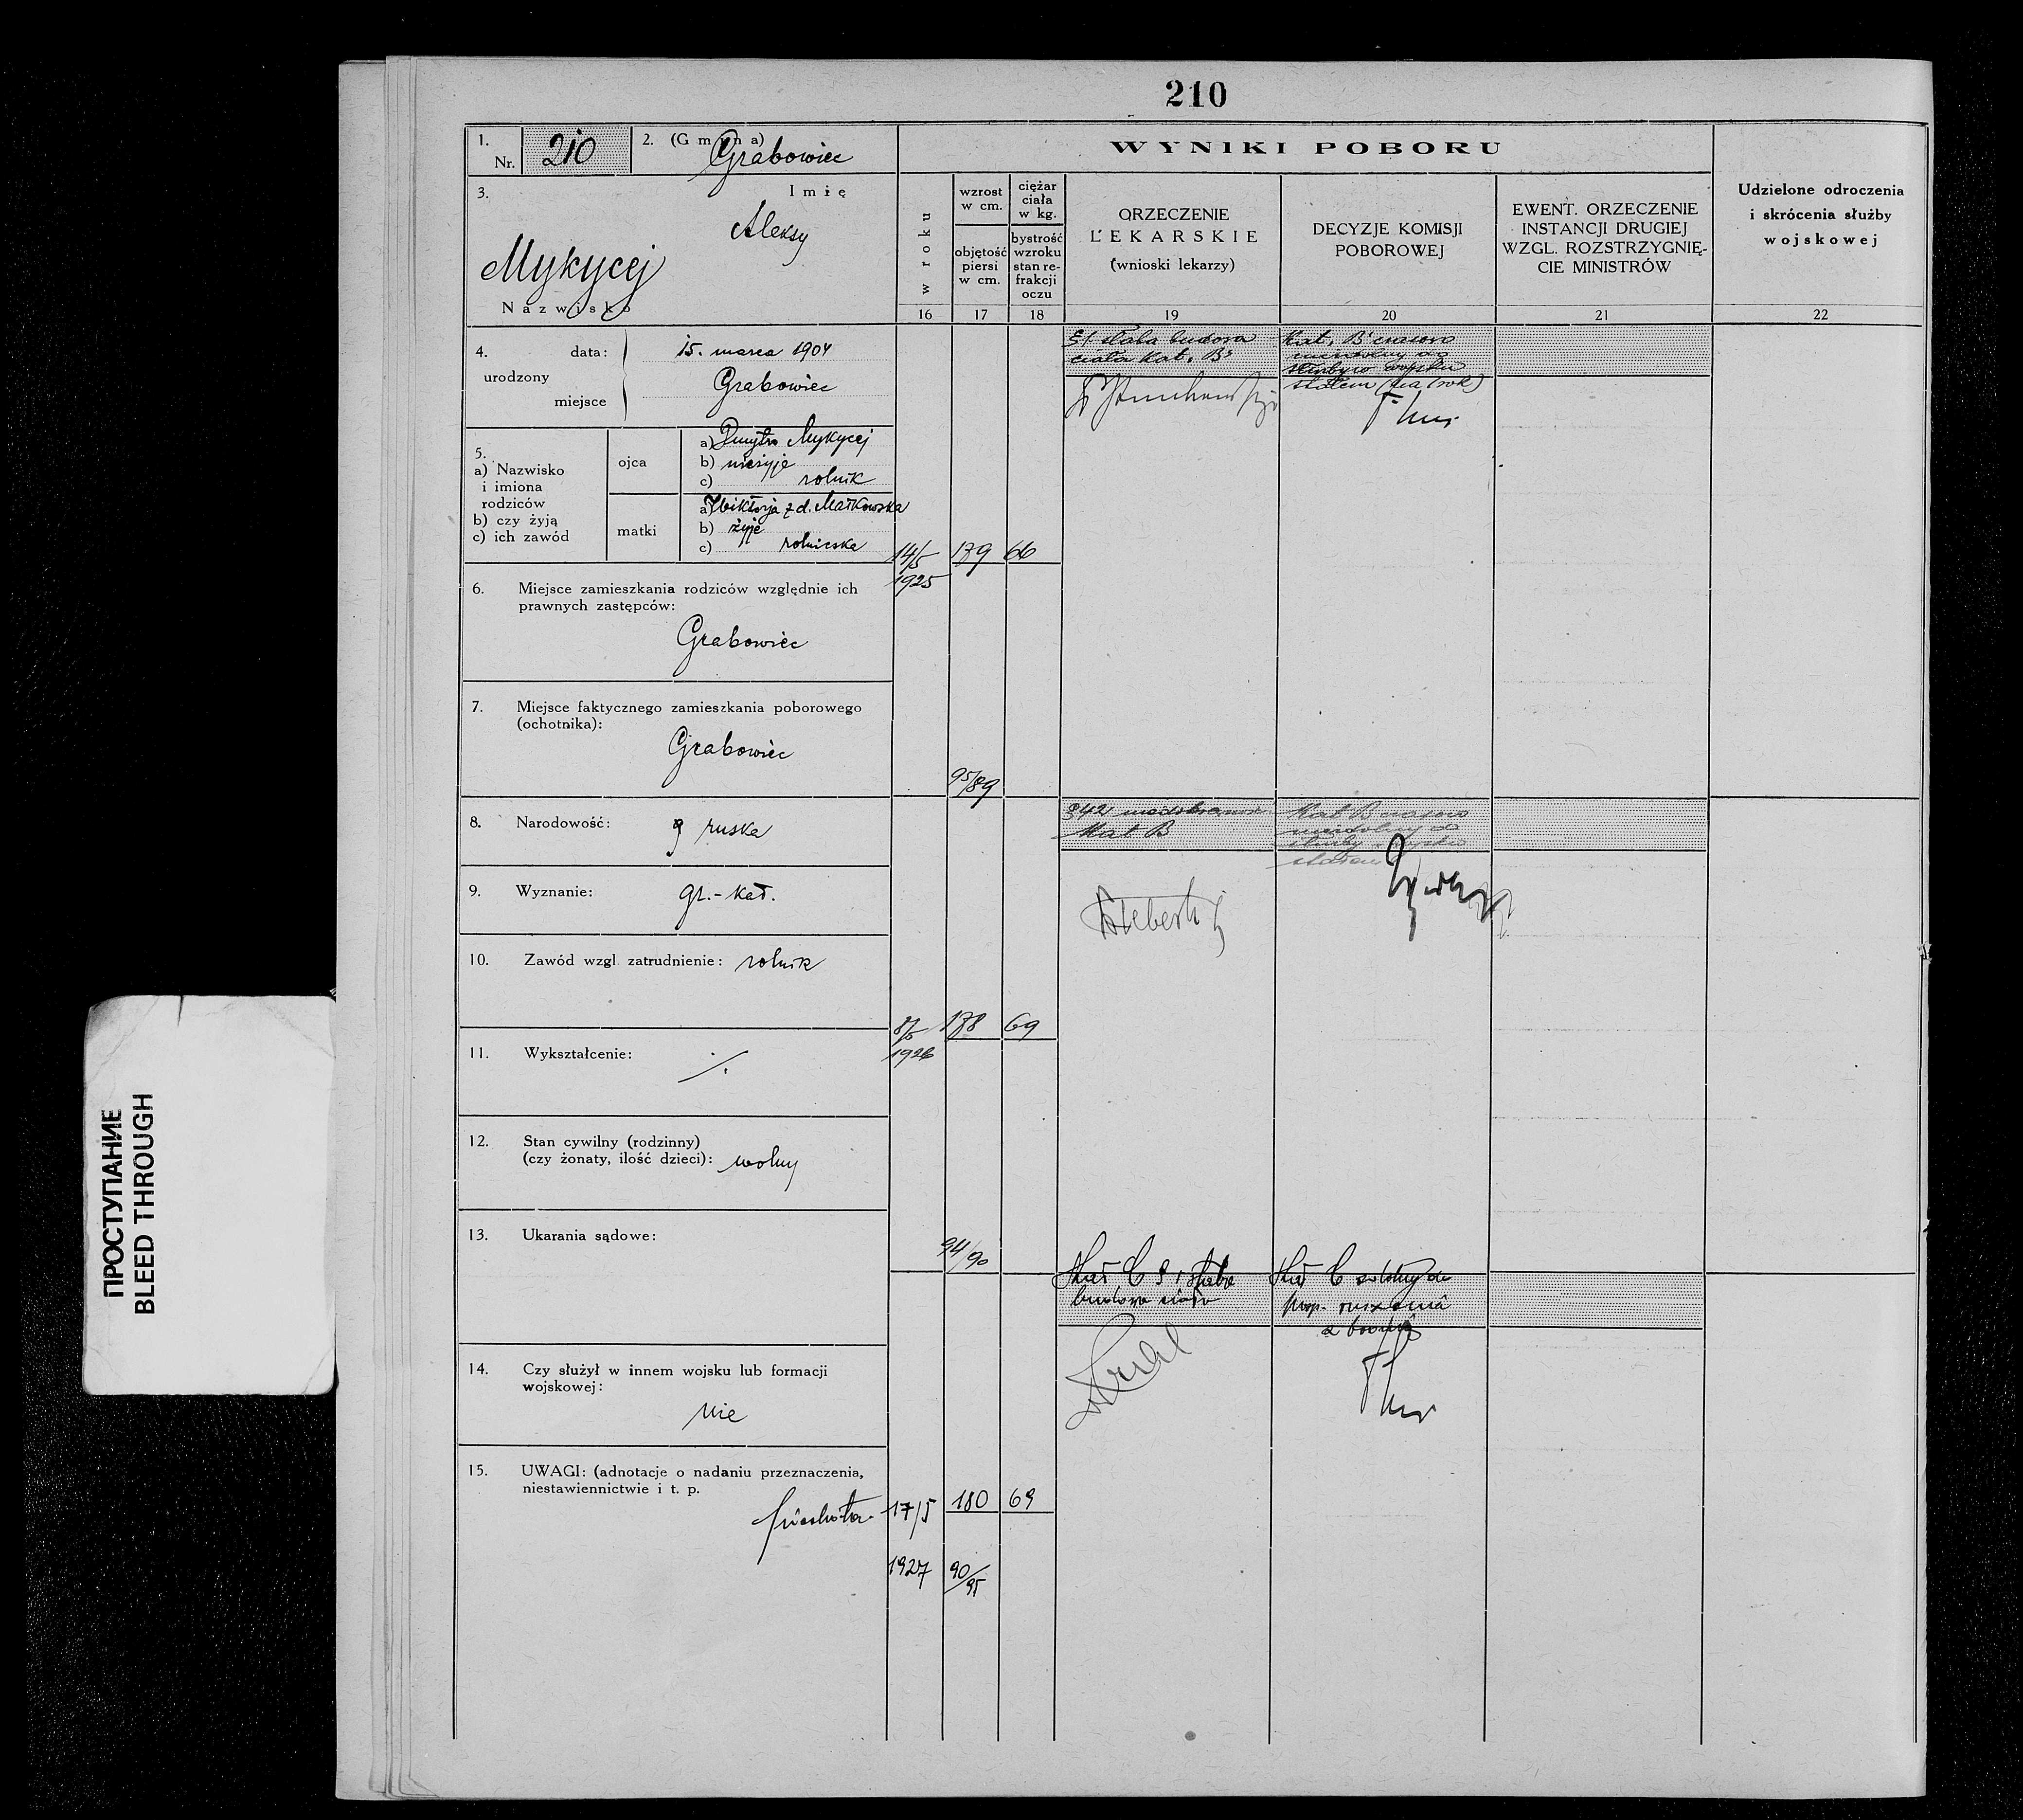 210
1.
Nr. 210
2. (Gmina)
Grabowiec
WYNIKI POBORU
3. Imię
Aleksy
Mykycej
Nazwisko
w roku
wzrost
w cm.
objętość
piersi
w cm.
ciężar
ciała
w kg.
bystrość
wzroku
stan re-
frakcji
oczu
ORZECZENIE
LEKARSKIE
(wnioski lekarzy)
DECYZJE KOMISJI
POBOROWEJ
EWENT. ORZECZENIE
INSTANCJI DRUGIEJ
WZGL. ROZSTRZYGNIĘ-
CIE MINISTRÓW
Udzielone odroczenia
i skrócenia służby
wojskowej
16 17 18 19 20 21 22
4. data: 15. marca 1904
urodzony
Grabowiec
miejsce
5.
a) Nazwisko
i imiona
rodziców
b) czy żyją
c) ich zawód
ojca
a) Dmytro Mykycej
b) nieżyje
c) rolnik
matki
a) Wiktorja z d. Małkowska
b) żyje
c) rolniczka
6. Miejsce zamieszkania rodziców względnie ich
prawnych zastępców:
Grabowiec
7. Miejsce faktycznego zamieszkania poborowego
(ochotnika):
Grabowiec
8. Narodowość: ruska
9. Wyznanie: gr.-kat.
10. Zawód wzgl. zatrudnienie: rolnik
11. Wykształcenie: ./.
12. Stan cywilny (rodzinny)
(czy żonaty, ilość dzieci): wolny
13. Ukarania sądowe:
14. Czy służył w innem wojsku lub formacji
wojskowej:
nie
15. UWAGI: (adnotacje o nadaniu przeznaczenia,
niestawiennictwie i t. p.
piechota
14/5 179 66
1925
95/89
słaba budowa
ciała Kat. B
Kat. B czasowo
niezdolny do
służby w wojsku
stałem (na 1 rok)
8/5 178 69
1926
94/90
Kat B
Kat B czasowo
niezdolny do
służby wojsku
stałem
17/5 180 69
1927 90/95
Kat C § 1 słaba
budowa ciała
Kat C zdolny do
posp. ruszenia
z bronią
ПРОСТУПАНИЕ
BLEED THROUGH